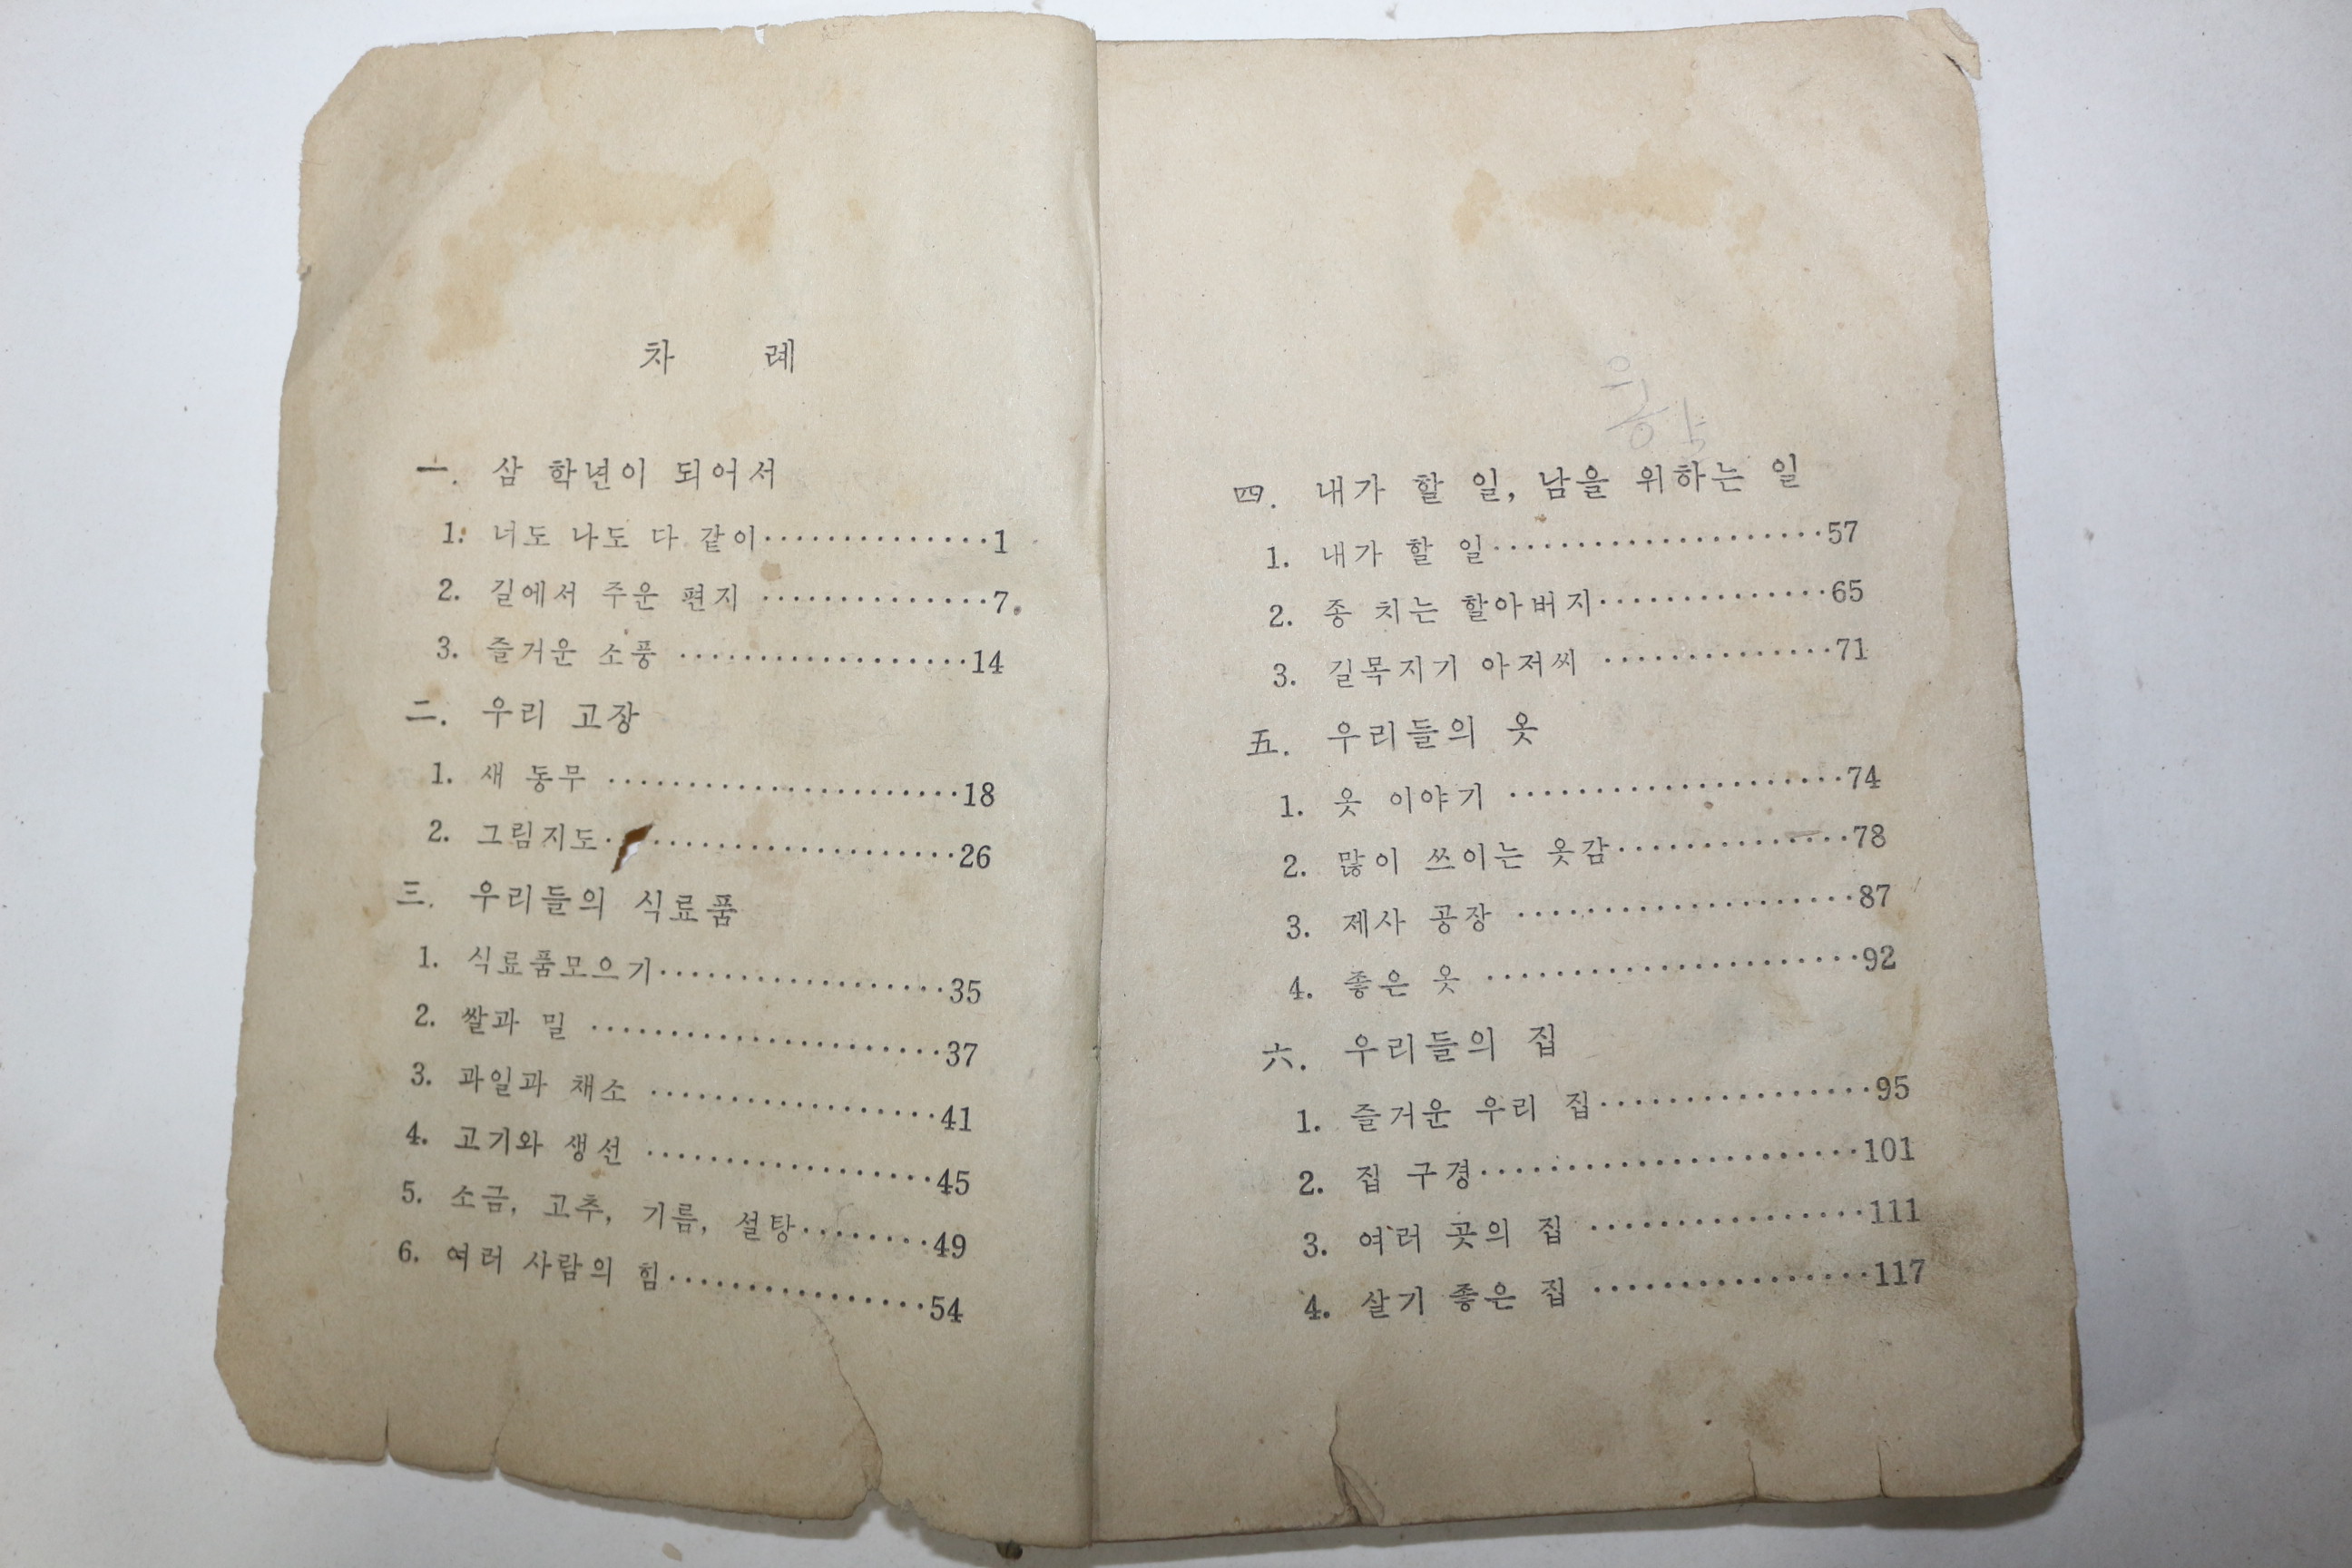 차 례
一. 삼 학년이 되어서
1. 너도 나도 다 같이··············1
2. 길에서 주운 편지 ··············7
3. 즐거운 소풍 ··················14
二. 우리 고장
1. 새 동무 ······················18
2. 그림지도······················26
三. 우리들의 식료품
1. 식료품모으기··················35
2. 쌀과 밀 ······················37
3. 과일과 채소 ··················41
4. 고기와 생선 ··················45
5. 소금, 고추, 기름, 설탕········49
6. 여러 사람의 힘················54
四. 내가 할 일, 남을 위하는 일
1. 내가 할 일····················57
2. 종 치는 할아버지··············65
3. 길목지기 아저씨 ··············71
五. 우리들의 옷
1. 옷 이야기 ····················74
2. 많이 쓰이는 옷감··············78
3. 제사 공장 ····················87
4. 좋은 옷 ······················92
六. 우리들의 집
1. 즐거운 우리 집················95
2. 집 구경······················101
3. 여러 곳의 집 ················111
4. 살기 좋은 집 ················117